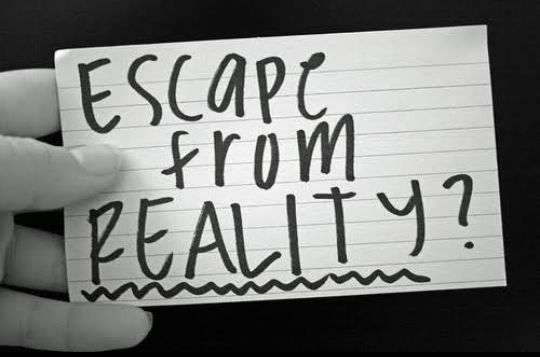 ESCAPE
from
REALITY?